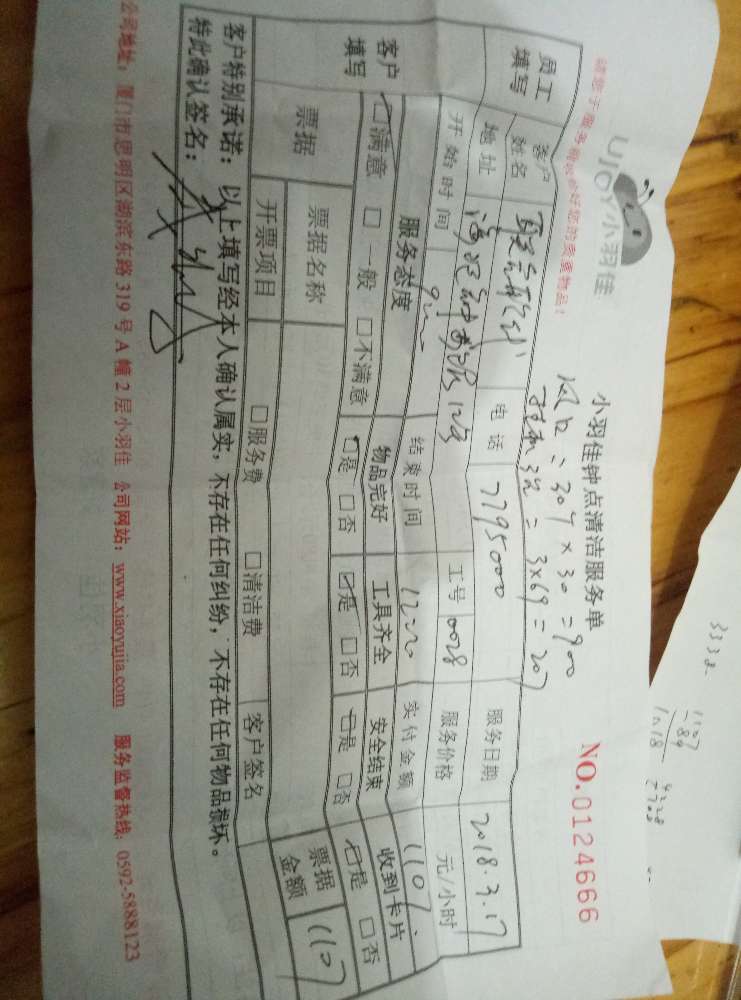 请勿于服务前收好您的贵重物品!
UJOY小羽佳
小羽佳钟点清洁服务单
NO.0124666
风口:30个×30=900
挂机3次=3×69=207
员工填写
客户姓名
电话 7795000
服务日期 2018.3.17
地址
工号 0028
服务价格 元/小时
开始时间
结束时间
实付金额 1107
客户填写
服务态度 物品完好 工具齐全 安全结束 收到卡片
☑满意 □一般 □不满意 ☑是 □否 ☑是 □否 ☑是 □否 ☑是 □否
票据
票据名称
票据金额 1107
开票项目 □服务费 □清洁费 客户签名
客户特别承诺:以上填写经本人确认属实,不存在任何纠纷,不存在任何物品损坏。
特此确认签名:
公司地址:厦门市思明区湖滨东路319号A幢2层小羽佳 公司网站:www.xiaoyujia.com 服务监督热线:0592-5888123
3332
1107
-89
1018